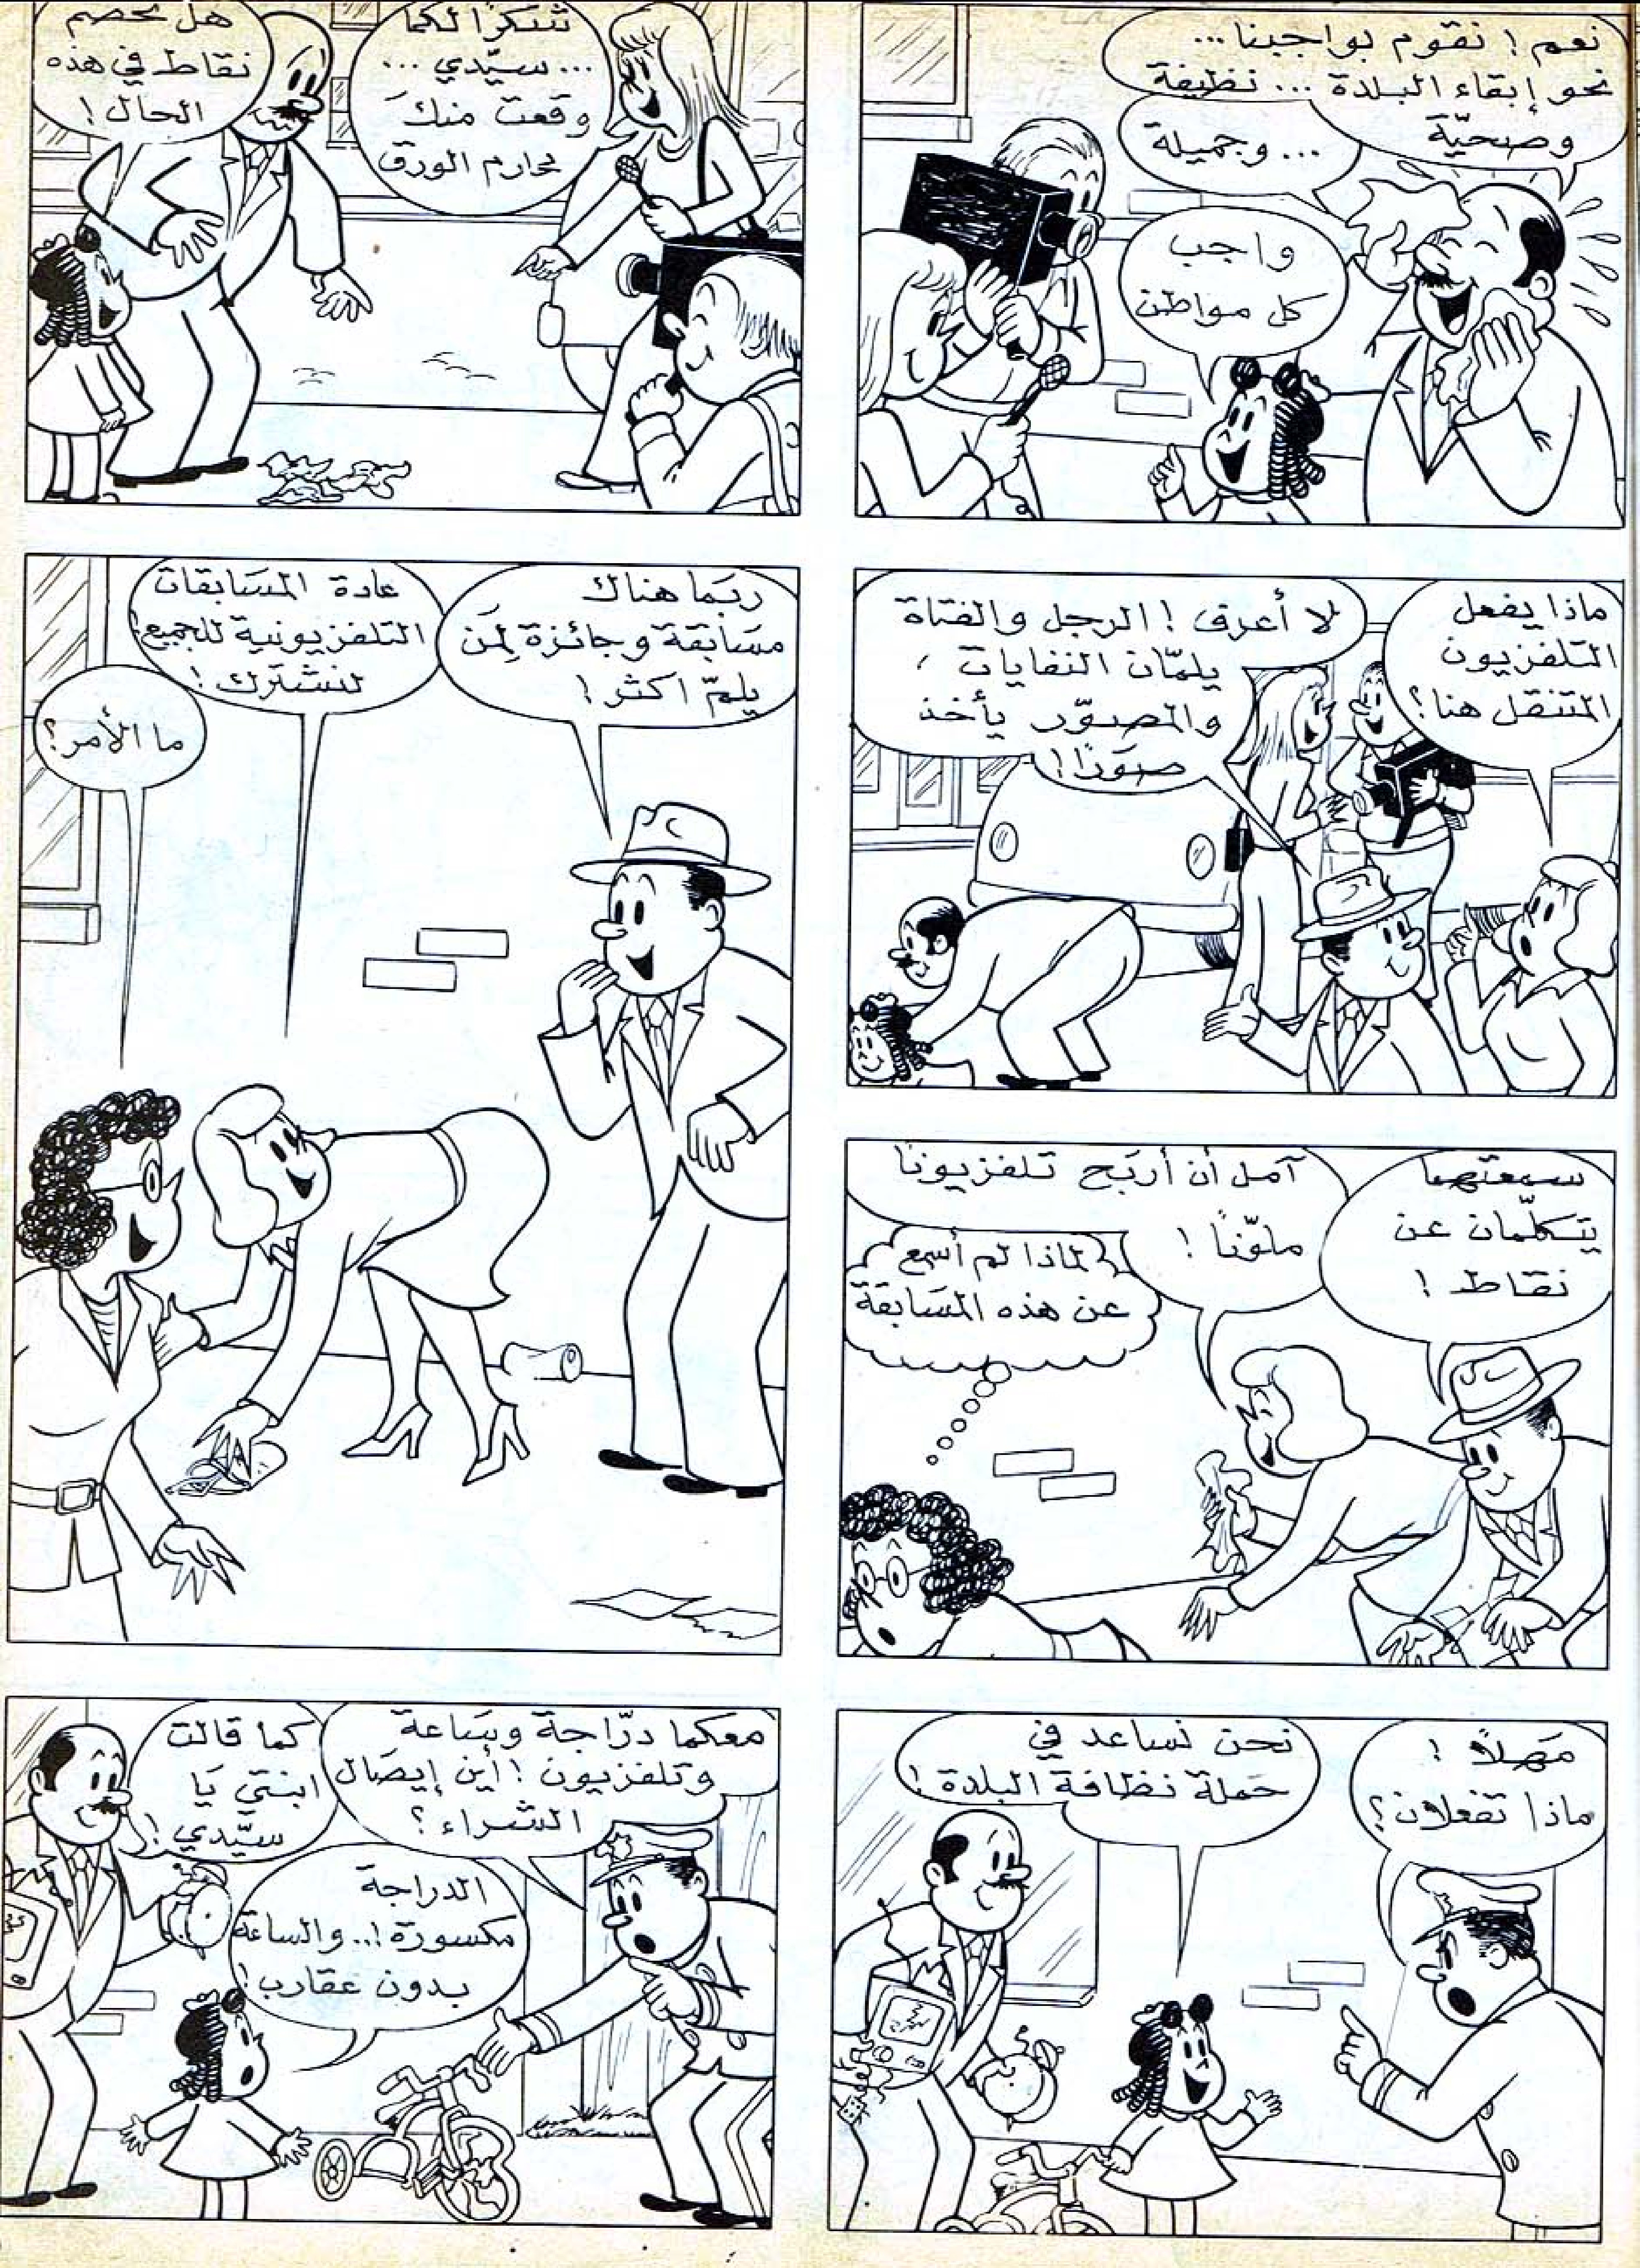 نعم! نقوم بواجبنا...
نحو إبقاء البلدة... نظيفة
وصحيّة
... وجميلة
واجب
كل مواطن
شكرًا لكما
... سيّدي ...
وقعت منكَ
محارم الورق
هل نخصم
نقاط في هذه
الحال!
ماذا يفعل
التلفزيون
المتنقل هنا؟
لا أعرف! الرجل والفتاة
يلمّان النفايات،
والمصوّر يأخذ
صوَرًا!
ربّما هناك
مسَابقة وجائزة لِمَن
يلمّ اكثر!
عادة المسَابقات
التلفزيونية للجميع!
لنشترك!
ما الأمر؟
سمعتهما
يتكلّمان عن
نقاط!
آمل أن أربَح تلفزيونًا
ملوّنًا!
لماذا لم أسمع
عن هذه المسَابقة
مَهلاً!
ماذا تفعلان؟
نحن نساعد في
حَملة نظافة البلدة!
معكما درّاجة وسَاعة
وتلفزيون! أين إيصَال
الشراء؟
كما قالت
ابنتي يَا
سيّدي!
الدراجة
مكسورة!.. والساعة
بدون عقارب!